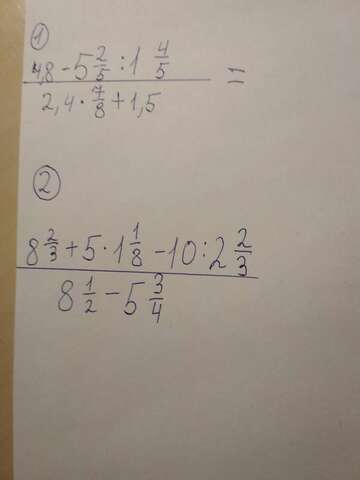 1
4,8 - 5 2/5 : 1 4/5 =
2,4 · 7/8 + 1,5
2
8 2/3 + 5 · 1 1/8 - 10 : 2 2/3
8 1/2 - 5 3/4